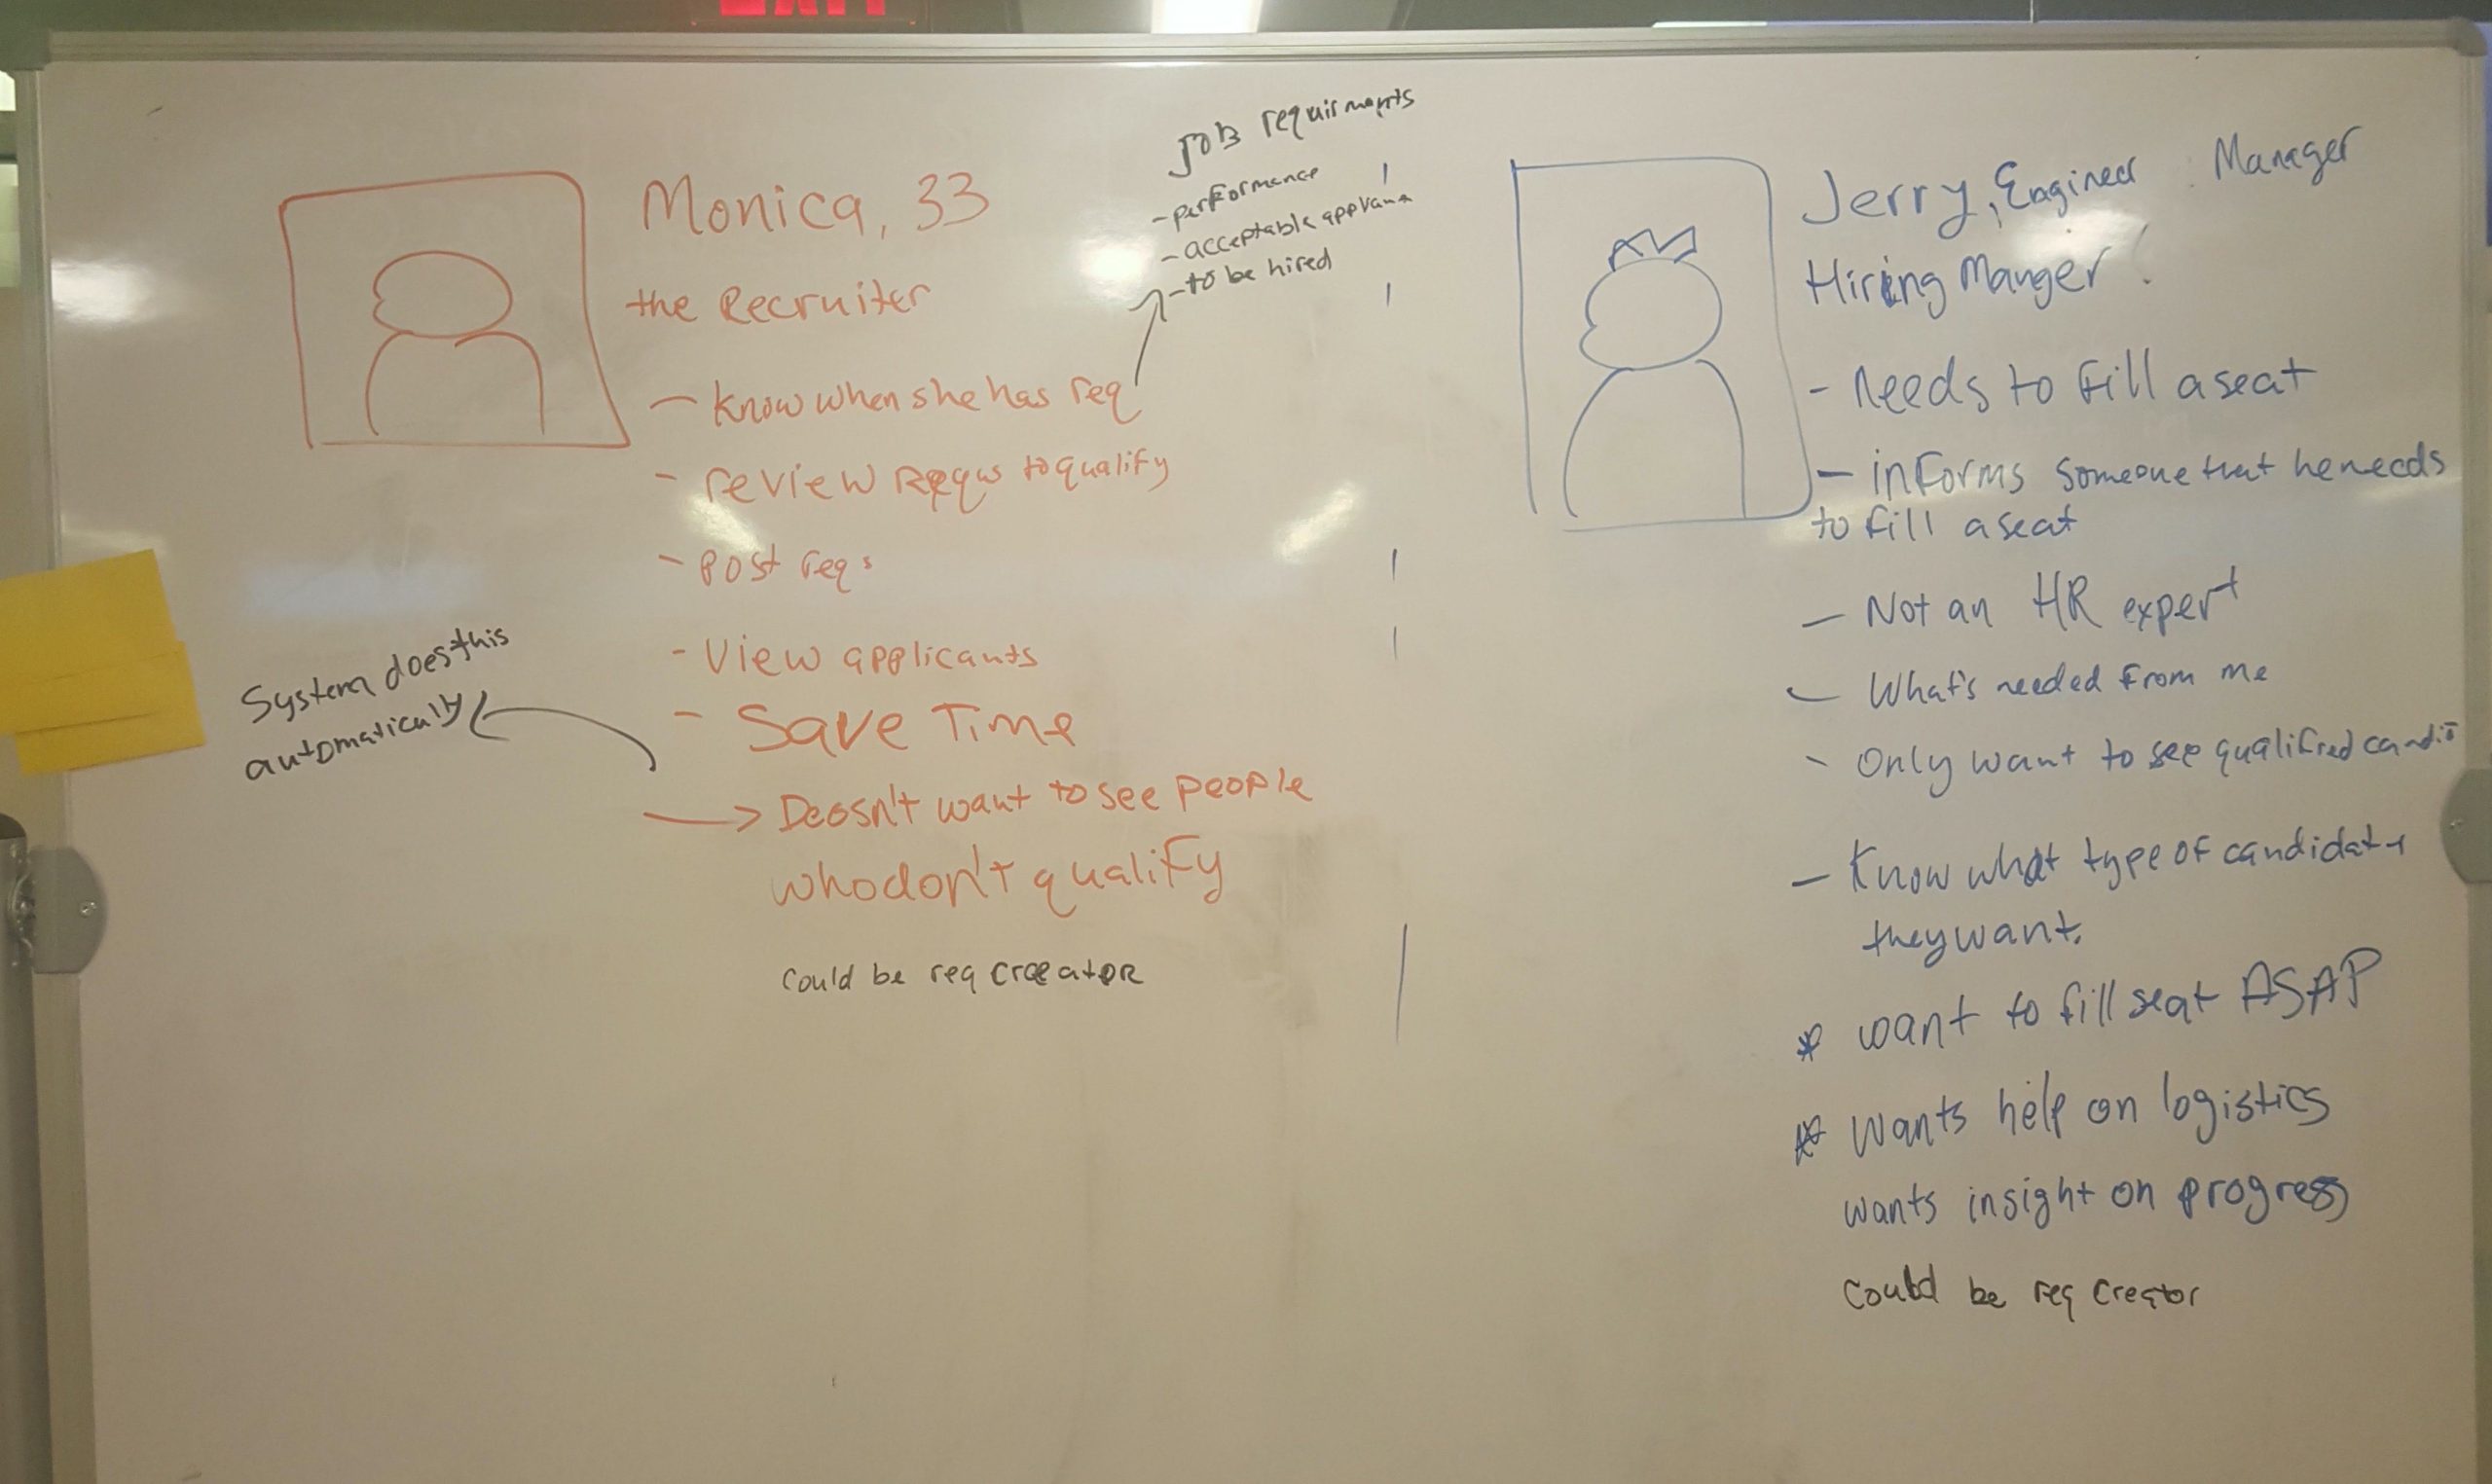 EXIT
Monica, 33
the Recruiter
- know when she has req
- review Reqs to qualify
- Post reqs
- View applicants
- Save Time
Deosn't want to see people
who don't qualify
could be req creator
Job requirments
- performance
- acceptable
- to be hired
System does this
automatically
Jerry, Engineer Manager
Hiring Manger
- Needs to fill a seat
- informs someone that he needs
to fill a seat
- Not an HR expert
- What's needed from me
- Only want to see qualified
- Know what type of candidate
they want.
* want to fill seat ASAP
* wants help on logistics
wants insight on progress
could be req creator